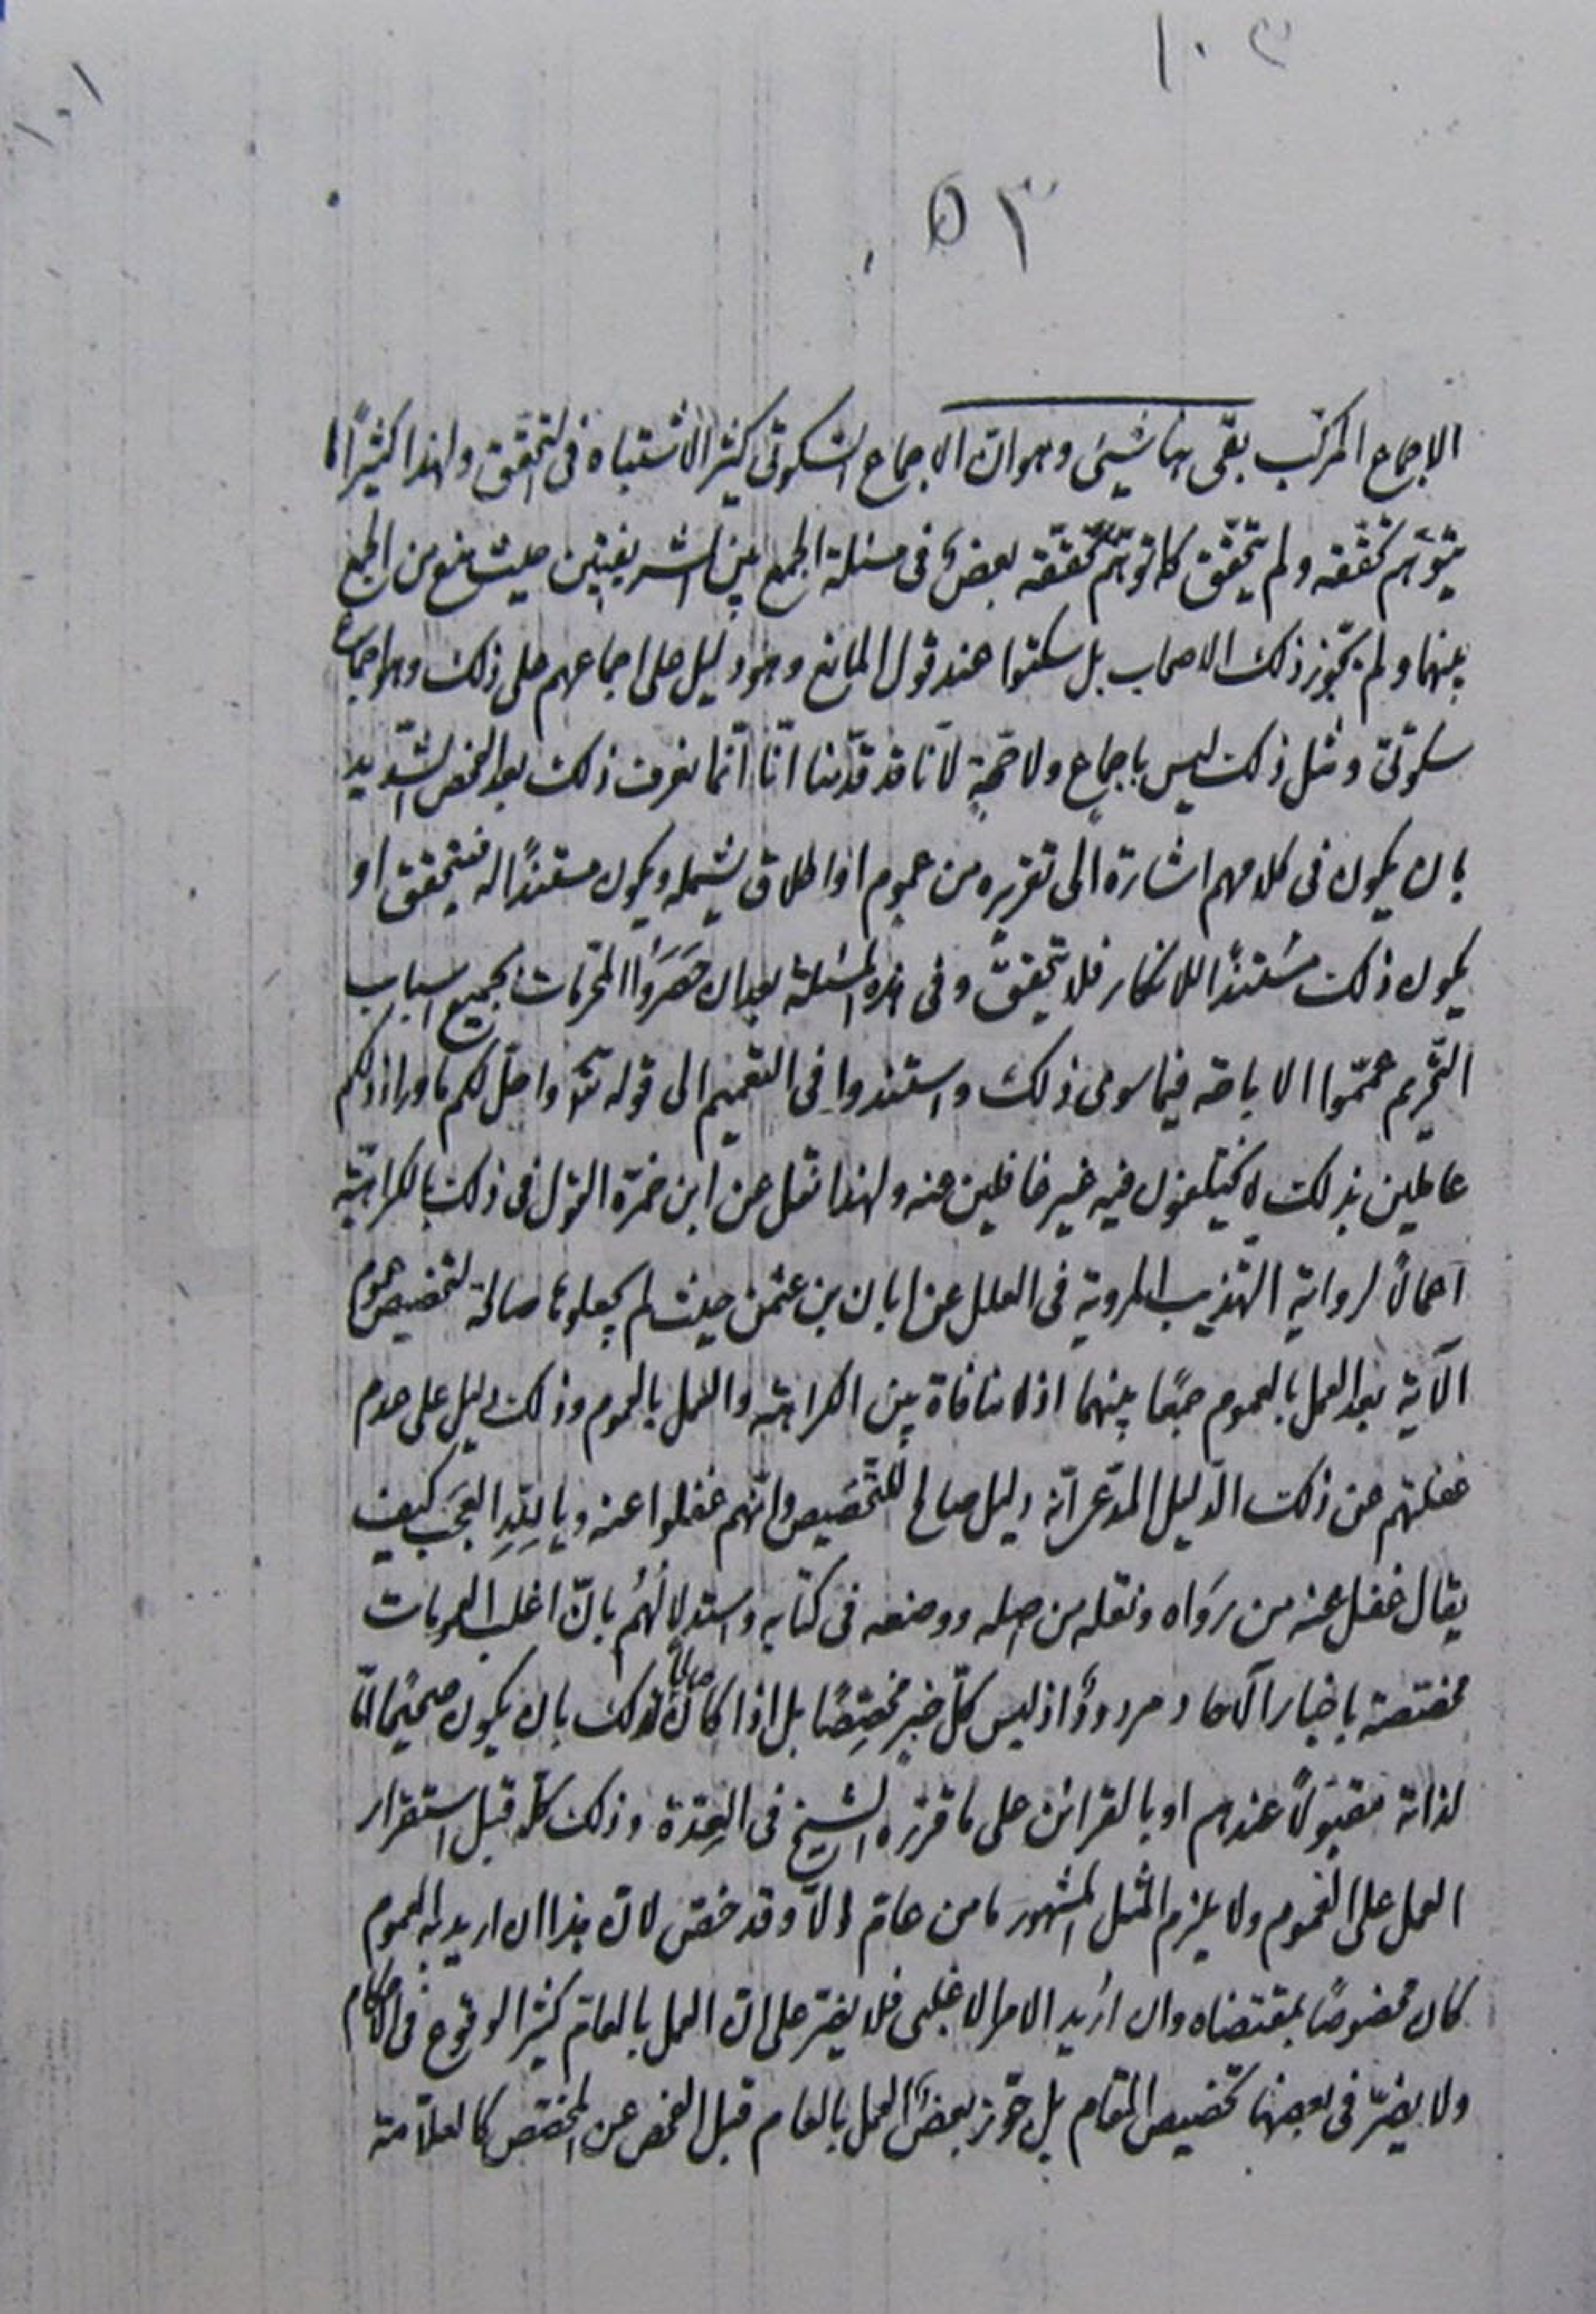 ١٠٣
١٠١
٥٣
الاجماع المركب بقى هنا شيئ وهو ان الاجماع السّكوتى كثير الاشتباه فى التحقق ولهذا كثيرًا ما
يتوهّم تحققه ولم يتحقّق كما توهّم تحققه بعضٌ فى مسئلة الجمع بين الشريفتين حيث منع من الجمع
بينهما ولم يجوز ذلك الاصحاب بل سكتوا عند قول المانع وهو دليل على اجماعهم على ذلك وهو اجماع
سكوتىّ ومثل ذلك ليس باجماعٍ ولا حجةٍ لانّا قد قدّمنا انّا انّما نعرف ذلك بعد الفحص الشّديد
بان يكون فى كلامهم اشارة الى تقريره من عموم او اطلاق يشمله ويكون مستندًا له فيتحقق او
يكون ذلك مستندًا للانكار فلا يتحقق وفى هذه المسئلة بعد ان حَصَرَوُا المحرّمات بجميع اسباب
التّحريم عمّموا الاباحة فيما سوى ذلك واستندوا فى التعميم الى قوله تع واحلّ لكم ما وراء ذلكم
عاملين بذلك لا يختلفون فيه غير غافلين عنه ولهذا نقل عن ابن حمزة القول فى ذلك بالكراهيّة
اعمالاً لرواية التهذيب المروية فى العلل عن ابان بن عثمن حيث لم يجعلوها صالحة لتخصيص عموم
الآية بعد العمل بالعموم جمعًا بينهما اذ لا منافاة بين الكراهيّة والعمل بالعموم وذلك دليل على عدم
غفلتهم عن ذلك الدّليل المدّعى انّه دليل صالح للتّخصَيص وانّهم غفلوا عنه ويا لِلّهِ العَجَب كيف
يقال غفل عنه من رَوَاه ونقله من اصله ووضعه فى كتابه واستدلالهُم بانّ اغلب العمومات
مختصة باخبار الآحاد مردودٌ اذ ليس كلّ خبرٍ مخصِّصًا بل اذا كان صالحًا لذلك بان يكون صحيحًا امّا
لذاته مقبولاً عندهم او بالقرائن على ما قرّره الشيخ فى العِدّة وذلك كلّه قبل استقرار
العمل على العموم ولا يلزم المثل المشهور ما من عام الّا وقد خصّ لانّ هذا ان اريد به العموم
كان مخصوصًا بمقتضاه وان اُريد الامر الاغلبى فلا يضرّ على انّ العمل بالعام كثير الوقوع فى الاحكام
ولا يضرّ فى بعضها تخصيص المقام بل جوّز بعضٌ العمل بالعام قبل الفحص عن المخصّص كالعلّامة